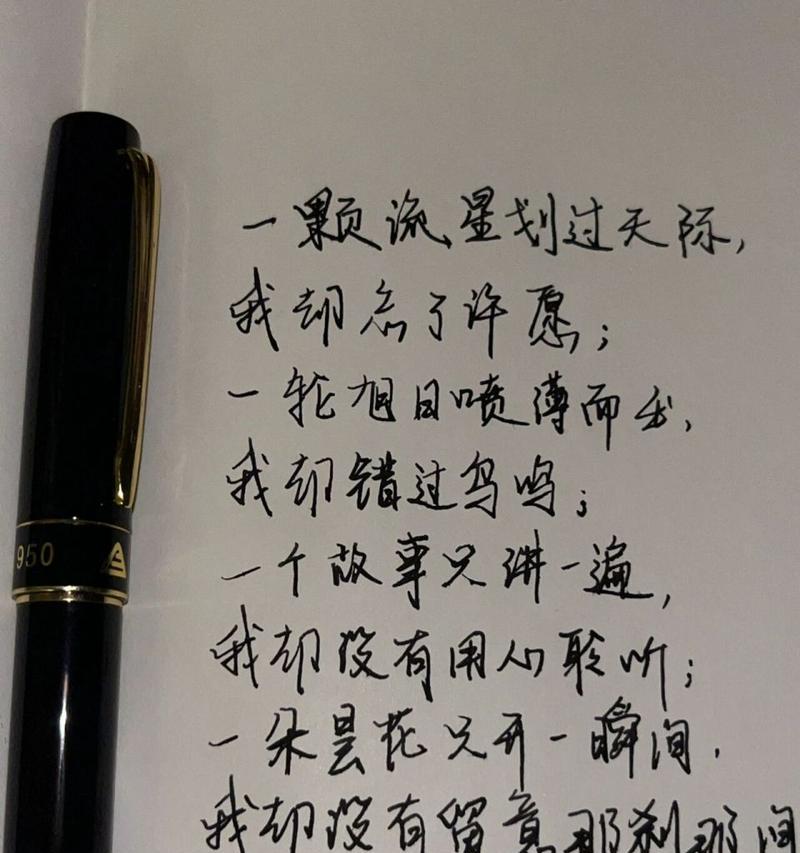 一颗流星划过天际,
我却忘了许愿;
一轮旭日喷薄而出,
我却错过鸟鸣;
一个故事只讲一遍,
我却没有用心聆听;
一朵昙花只开一瞬间.
我却没有留意那刹那间
950